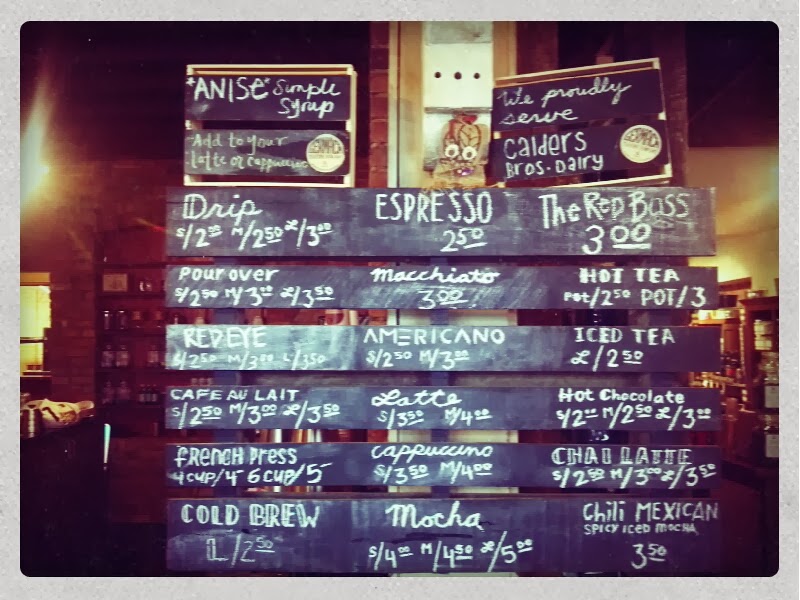 *ANISE* Simple
Syrup
Add to your
latte or cappuccino
We proudly
serve
Calders
Bros. Dairy
Drip
S/2⁰⁰ M/2⁵⁰ L/3⁰⁰
ESPRESSO
2⁵⁰
The Red Bass
3⁰⁰
Pour over
S/2⁵⁰ M/3⁰⁰ L/3⁵⁰
Macchiato
3⁰⁰
HOT TEA
Pot/2⁵⁰ POT/3
REDEYE
S/2⁵⁰ M/3⁰⁰ L/3⁵⁰
AMERICANO
S/2⁵⁰ M/3⁰⁰
ICED TEA
L/2⁵⁰
CAFE AU LAIT
S/2⁵⁰ M/3⁰⁰ L/3⁵⁰
Latte
S/3⁵⁰ M/4⁰⁰
Hot Chocolate
S/2⁰⁰ M/2⁵⁰ L/3⁰⁰
FRENCH PRESS
4 CUP/4⁻ 6 CUP/5⁻
Cappuccino
S/3⁵⁰ M/4⁰⁰
CHAI LATTE
S/2⁵⁰ M/3⁰⁰ L/3⁵⁰
COLD BREW
L/2⁵⁰
Mocha
S/4⁰⁰ M/4⁵⁰ L/5⁰⁰
Chili MEXICAN
SPICY ICED MOCHA
3⁵⁰